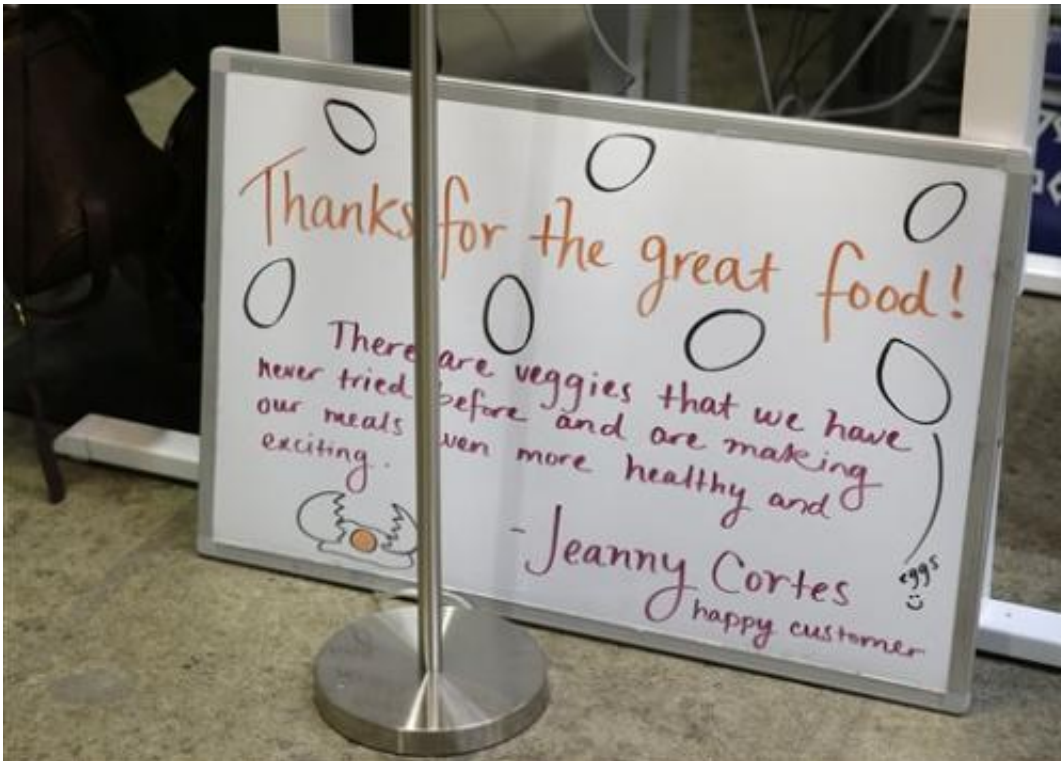 Thanks for the great food!
There are veggies that we have
never tried before and are making
our meals even more healthy and
exciting.
- Jeanny Cortes
happy customer
eggs